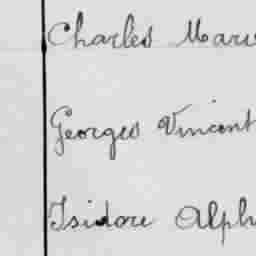 Charles Mari
Georges Vincent
Isidore Alph